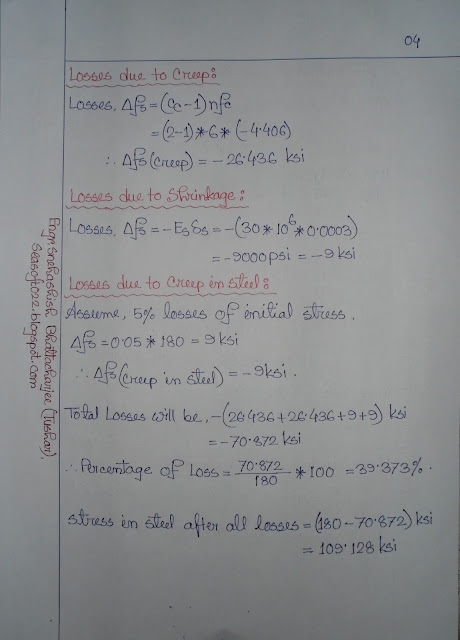 04
Losses due to Creep:
Losses, Δfs = (Cc-1)nfc
= (2-1)*6*(-4.406)
∴ Δfs (creep) = -26.436 ksi
Losses due to Shrinkage:
Losses, Δfs = -Esδs = -(30*10⁶*0.0003)
= -9000psi = -9ksi
Losses due to Creep in steel:
Assume, 5% losses of initial stress.
Δfs = 0.05*180 = 9ksi
∴ Δfs (creep in steel) = -9ksi.
Total Losses will be, -(26.436+26.436+9+9) ksi
= -70.872 ksi
∴ Percentage of Loss = 70.872/180 * 100 = 39.373%.
Stress in steel after all losses = (180-70.872) ksi
= 109.128 ksi
Engr. Snehashish Bhattacharjee (Tushar).
seasoft022.blogspot.com